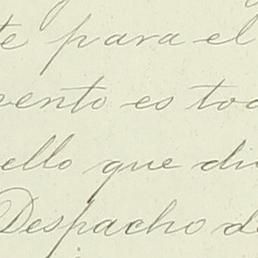 te para el
vento es tod
ello que di
Despacho de